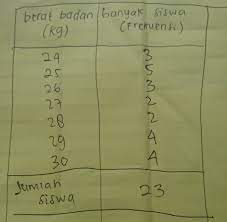 berat badan banyak siswa
(kg) (frekuensi)
24 3
25 5
26 3
27 2
28 2
29 4
30 4
Jumlah
siswa 23